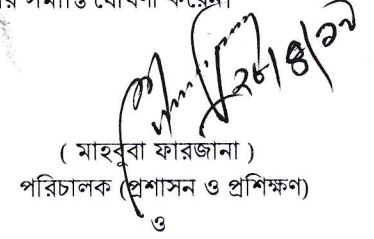 সমাপ্তি ঘোষণা করেন।
( মাহবুবা ফারজানা )
পরিচালক (প্রশাসন ও প্রশিক্ষণ)
ও